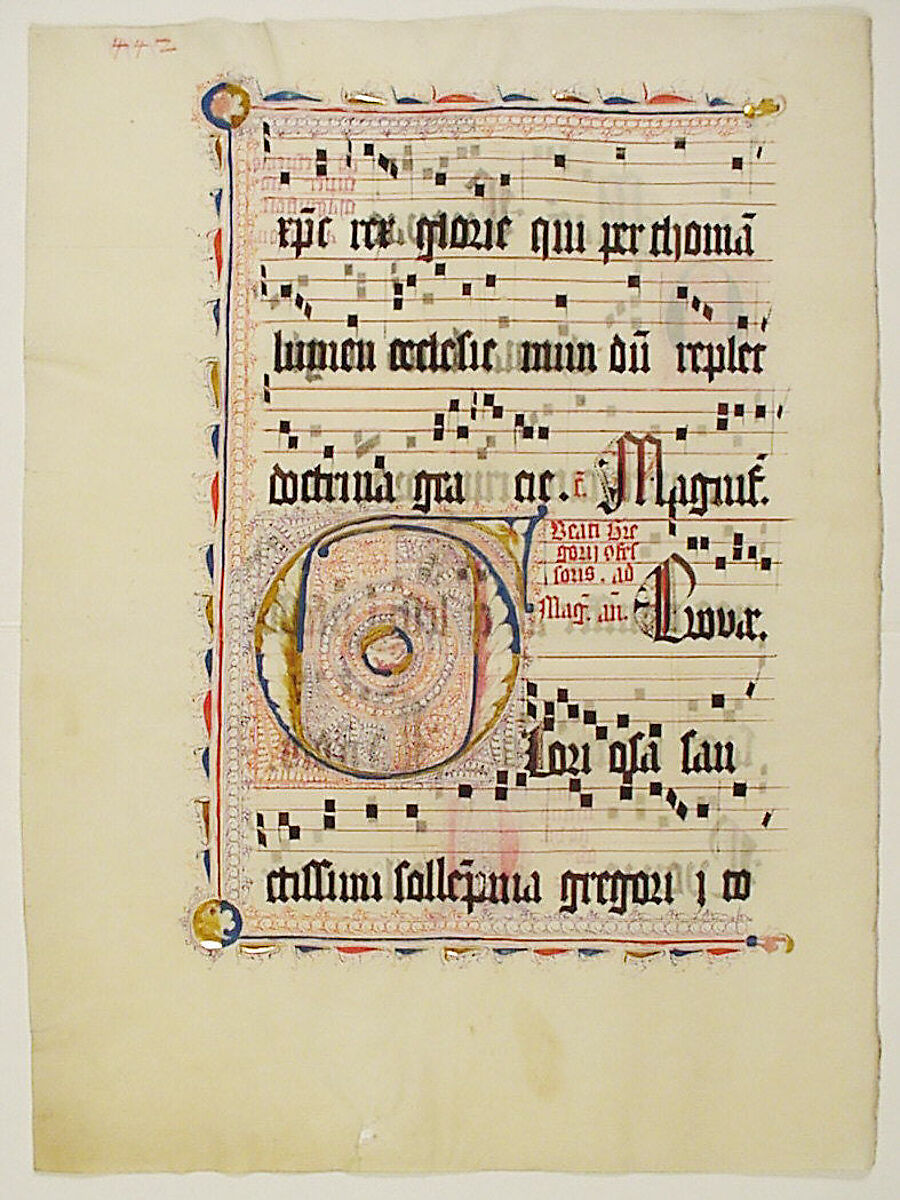 442
xp̄c rex glorie qui per thomā
lumen ecclesie mun dū replet
doctrina gra cie. r̄. Magnif̄.
Beati Gre
gorij ɔfes
soris. ad
Mag̅. an̄. Euouae.
Glori osa san
ctissimi solle̅pnia gregori j to